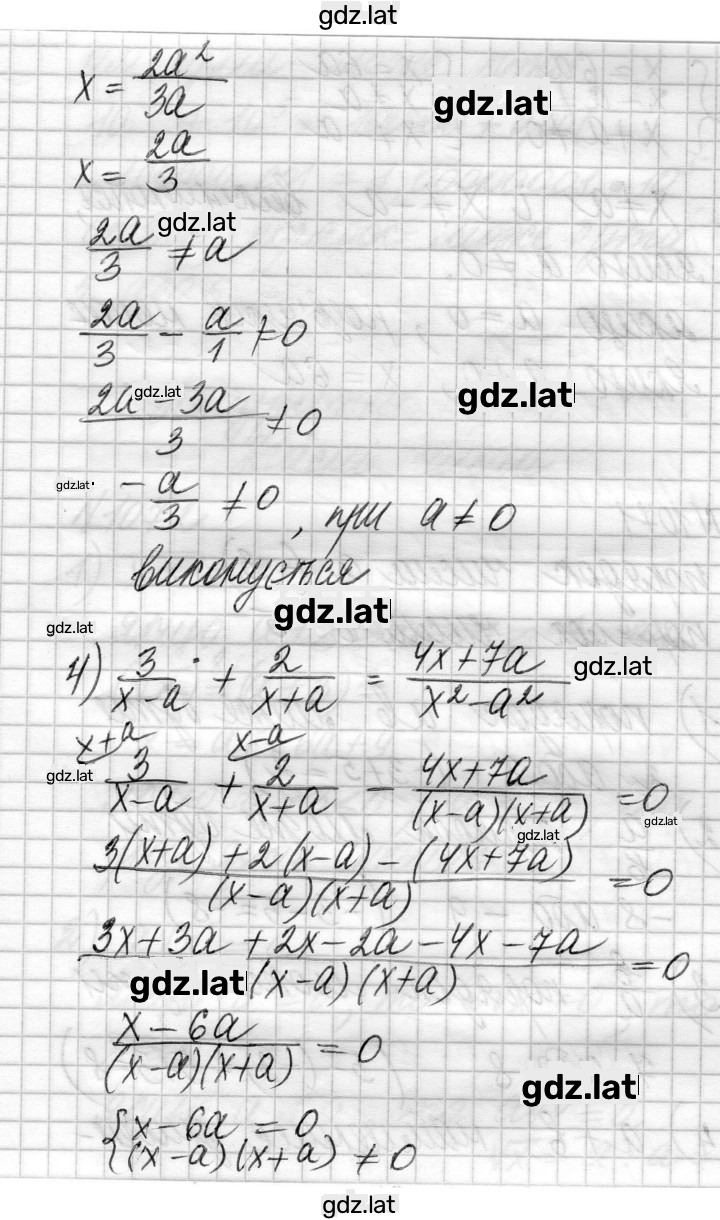 gdz.lat
x = 2a²/3a
gdz.lat
x = 2a/3
gdz.lat
2a/3 ≠ a
2a/3 − a/1 ≠ 0
gdz.lat
gdz.lat
(2a − 3a)/3 ≠ 0
gdz.lat
−a/3 ≠ 0, при a ≠ 0
виконується
gdz.lat
gdz.lat
4) 3/(x−a) + 2/(x+a) = (4x+7a)/(x²−a²)
gdz.lat
x+a x−a
gdz.lat
3/(x−a) + 2/(x+a) − (4x+7a)/((x−a)(x+a)) = 0
gdz.lat
gdz.lat
(3(x+a) + 2(x−a) − (4x+7a))/((x−a)(x+a)) = 0
(3x + 3a + 2x − 2a − 4x − 7a)/((x−a)(x+a)) = 0
gdz.lat
(x − 6a)/((x−a)(x+a)) = 0
gdz.lat
{ x − 6a = 0
(x−a)(x+a) ≠ 0
gdz.lat